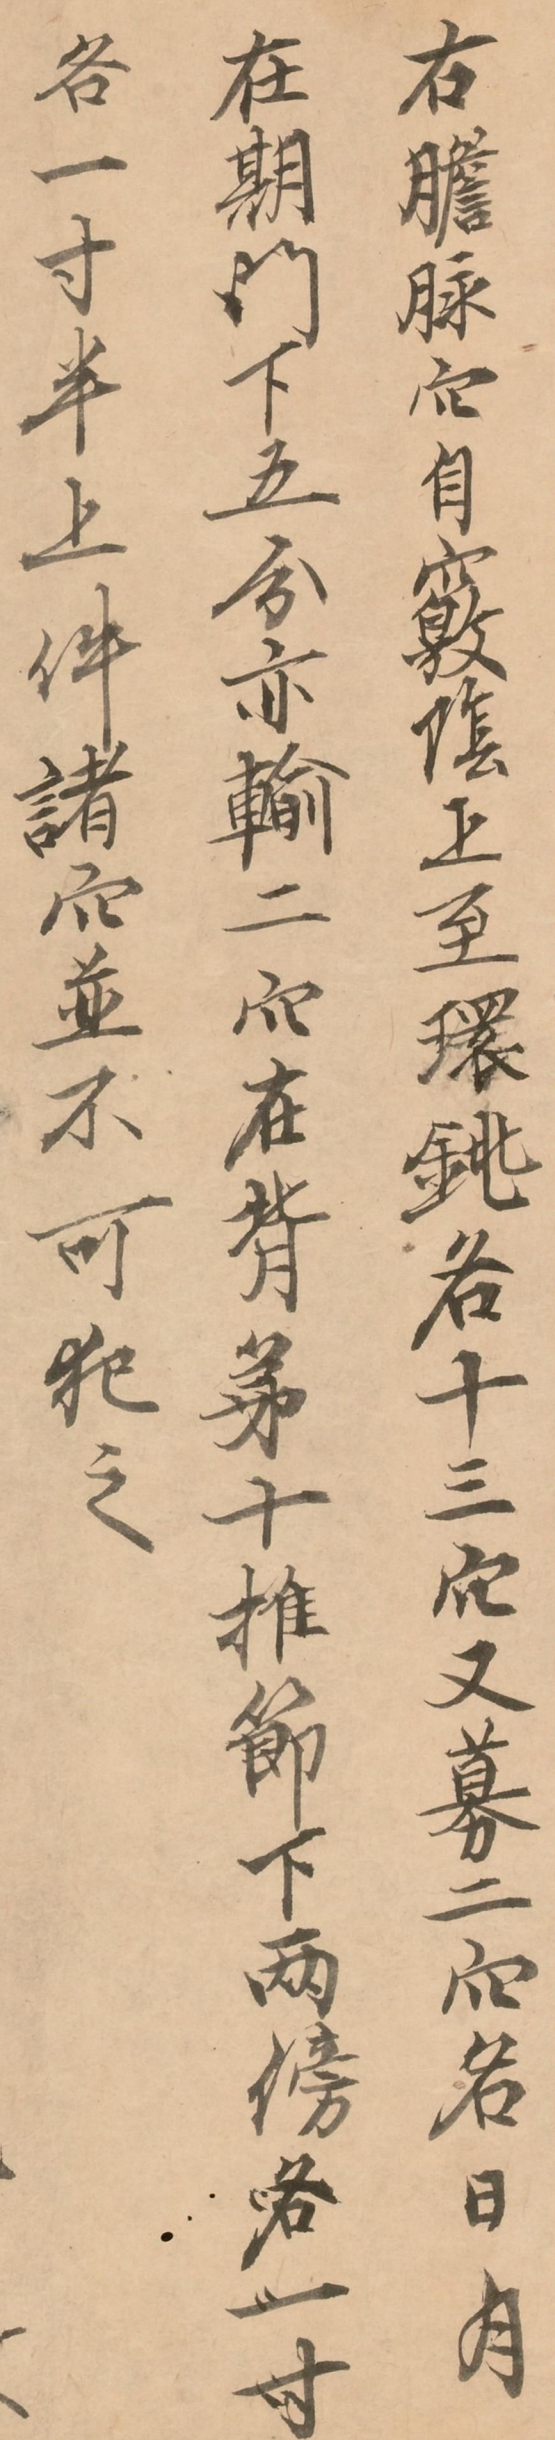 右膽脉穴自竅陰上至環銚各十三穴又募二穴名日月
在期門下五分亦輸二穴在背苐十椎節下两傍各一寸
各一寸半上件諸穴並不可犯之